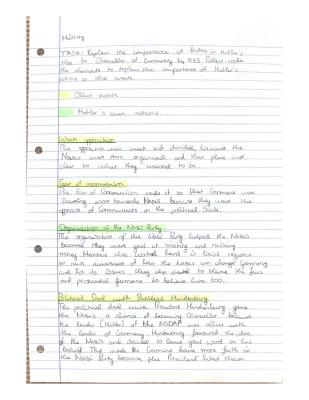 History
TASK: Explain the importance of factors in Hitler's
rise to Chancellor of Germany by 1933. Colour code
the elements to explain the importance of Hitler's
actions or other events.
Other events
Hitler's own actions.
Weak opposition
The opposition was weak and divided whereas the
Nazis were more organised and their plans were
clear to what they wanted to be.
Fear of communism
The fear of Communism made it so that Germans were
leaning more towards Nazis because they were the
opposite of Communists on the political scale.
Organisation of the Nazi Party
The organisation of the Nazi Party helped the Nazis
because they were good at making and raising
money. Members also worked hard in local regions
to raise awareness of how the Nazis can change Germany
and fix its issues. They also dealt to blame the jews
and persuaded germans to believe him too.
Political Deal with President Hindenburg
The political deal with President Hindenburg gave
the Nazis a chance of becoming Chancellor because
the leader (Hitler) of the NSDAP was allies with
the leader of Germany. Hindenburg favoured the idea
of the Nazis and decided to leave good word on their
behalf. This made the Germans have more faith in
the Nazi Party because the President liked them.